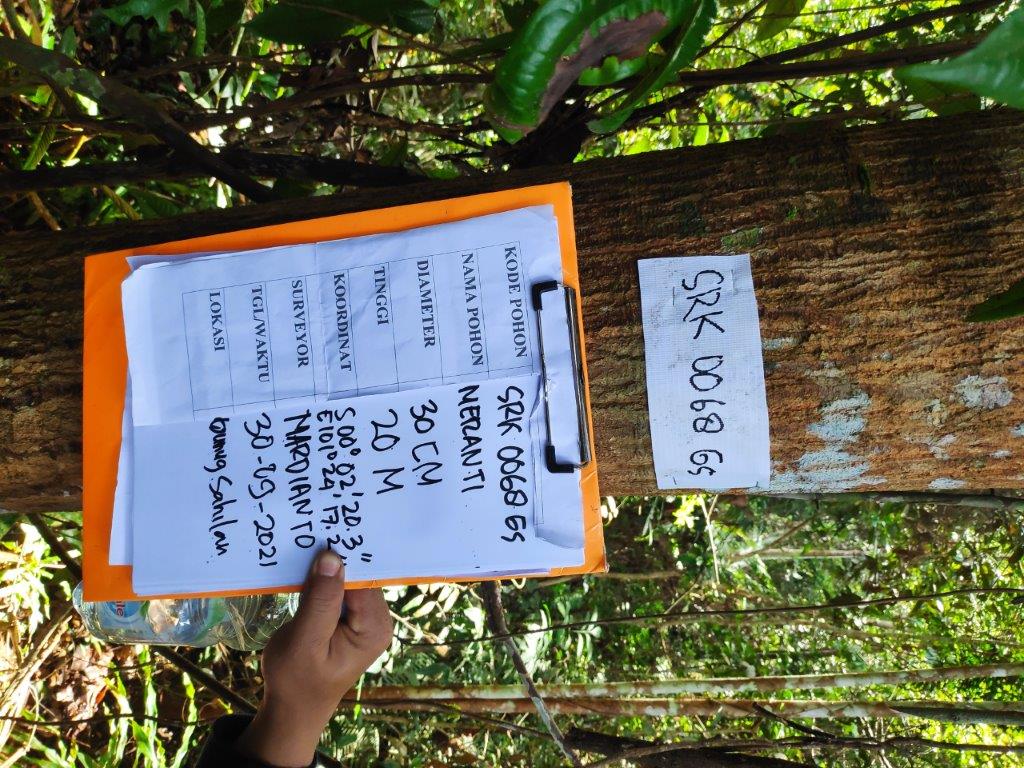 SRK 0068 GS
KODE POHON SRK 0068 GS
NAMA POHON MERANTI
DIAMETER 30 CM
TINGGI 20 M
KOORDINAT S 00° 02' 20.3"
E 101° 24' 17.2"
SURVEYOR MARDIANTO
TGL/WAKTU 30-09-2021
LOKASI Gunug Sahilan